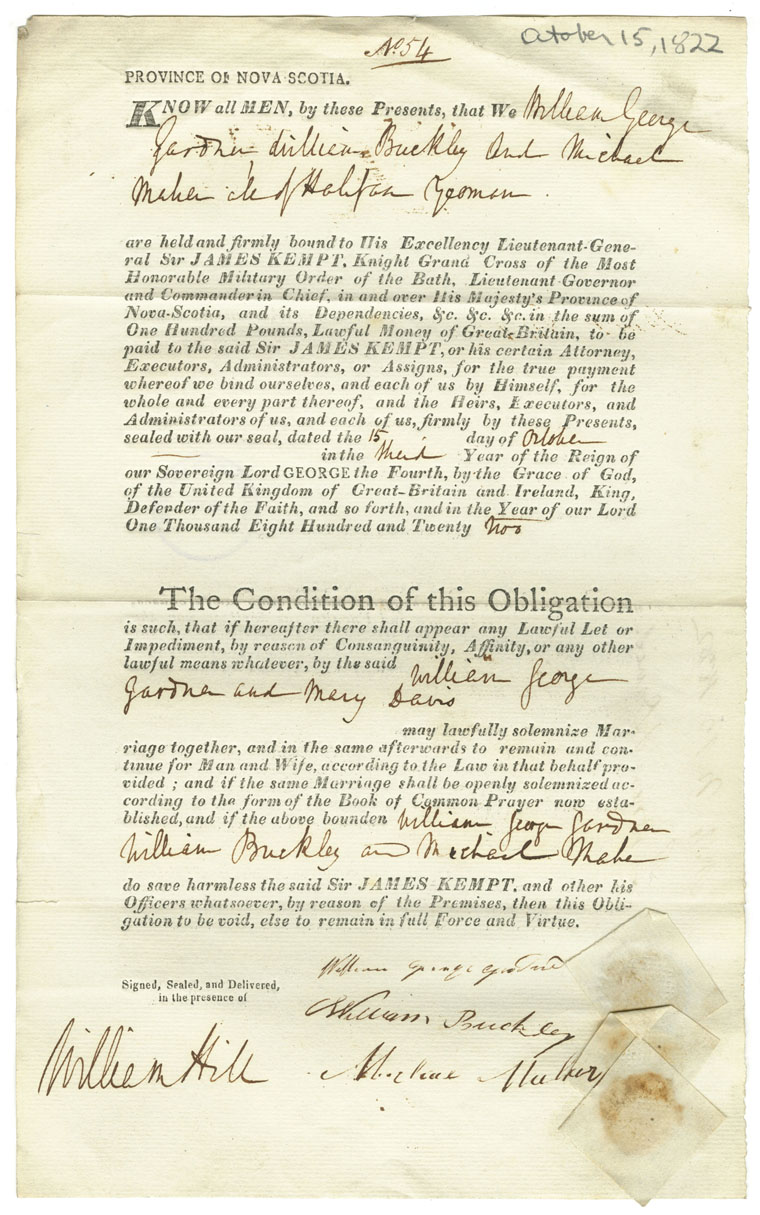 October 15, 1822
No. 54
PROVINCE OF NOVA SCOTIA.
KNOW all MEN, by these Presents, that We William George
Gardner William Buckley and Michael
Maher all of Halifax Yeoman
are held and firmly bound to His Excellency Lieutenant-Gene-
ral Sir JAMES KEMPT, Knight Grand Cross of the Most
Honorable Military Order of the Bath, Lieutenant Governor
and Commander in Chief, in and over His Majesty's Province of
Nova-Scotia, and its Dependencies, &c. &c. &c. in the sum of
One Hundred Pounds, Lawful Money of Great-Britain, to be
paid to the said Sir JAMES KEMPT, or his certain Attorney,
Executors, Administrators, or Assigns, for the true payment
whereof we bind ourselves, and each of us by Himself, for the
whole and every part thereof, and the Heirs, Executors, and
Administrators of us, and each of us, firmly by these Presents,
sealed with our seal, dated the 15 day of October
in the Third Year of the Reign of
our Sovereign Lord GEORGE the Fourth, by the Grace of God,
of the United Kingdom of Great-Britain and Ireland, King,
Defender of the Faith, and so forth, and in the Year of our Lord
One Thousand Eight Hundred and Twenty Two
The Condition of this Obligation
is such, that if hereafter there shall appear any Lawful Let or
Impediment, by reason of Consanguinity, Affinity, or any other
lawful means whatever, by the said William George
Gardner and Mary Davis
may lawfully solemnize Mar-
riage together, and in the same afterwards to remain and con-
tinue for Man and Wife, according to the Law in that behalf pro-
vided ; and if the same Marriage shall be openly solemnized ac-
cording to the form of the Book of Common Prayer now esta-
blished, and if the above bounden William George Gardner
William Buckley and Michael Maher
do save harmless the said Sir JAMES KEMPT, and other his
Officers whatsoever, by reason of the Premises, then this Obli-
gation to be void, else to remain in full Force and Virtue.
Signed, Sealed, and Delivered,
in the presence of
William George Gardner
William Buckley
William Hill